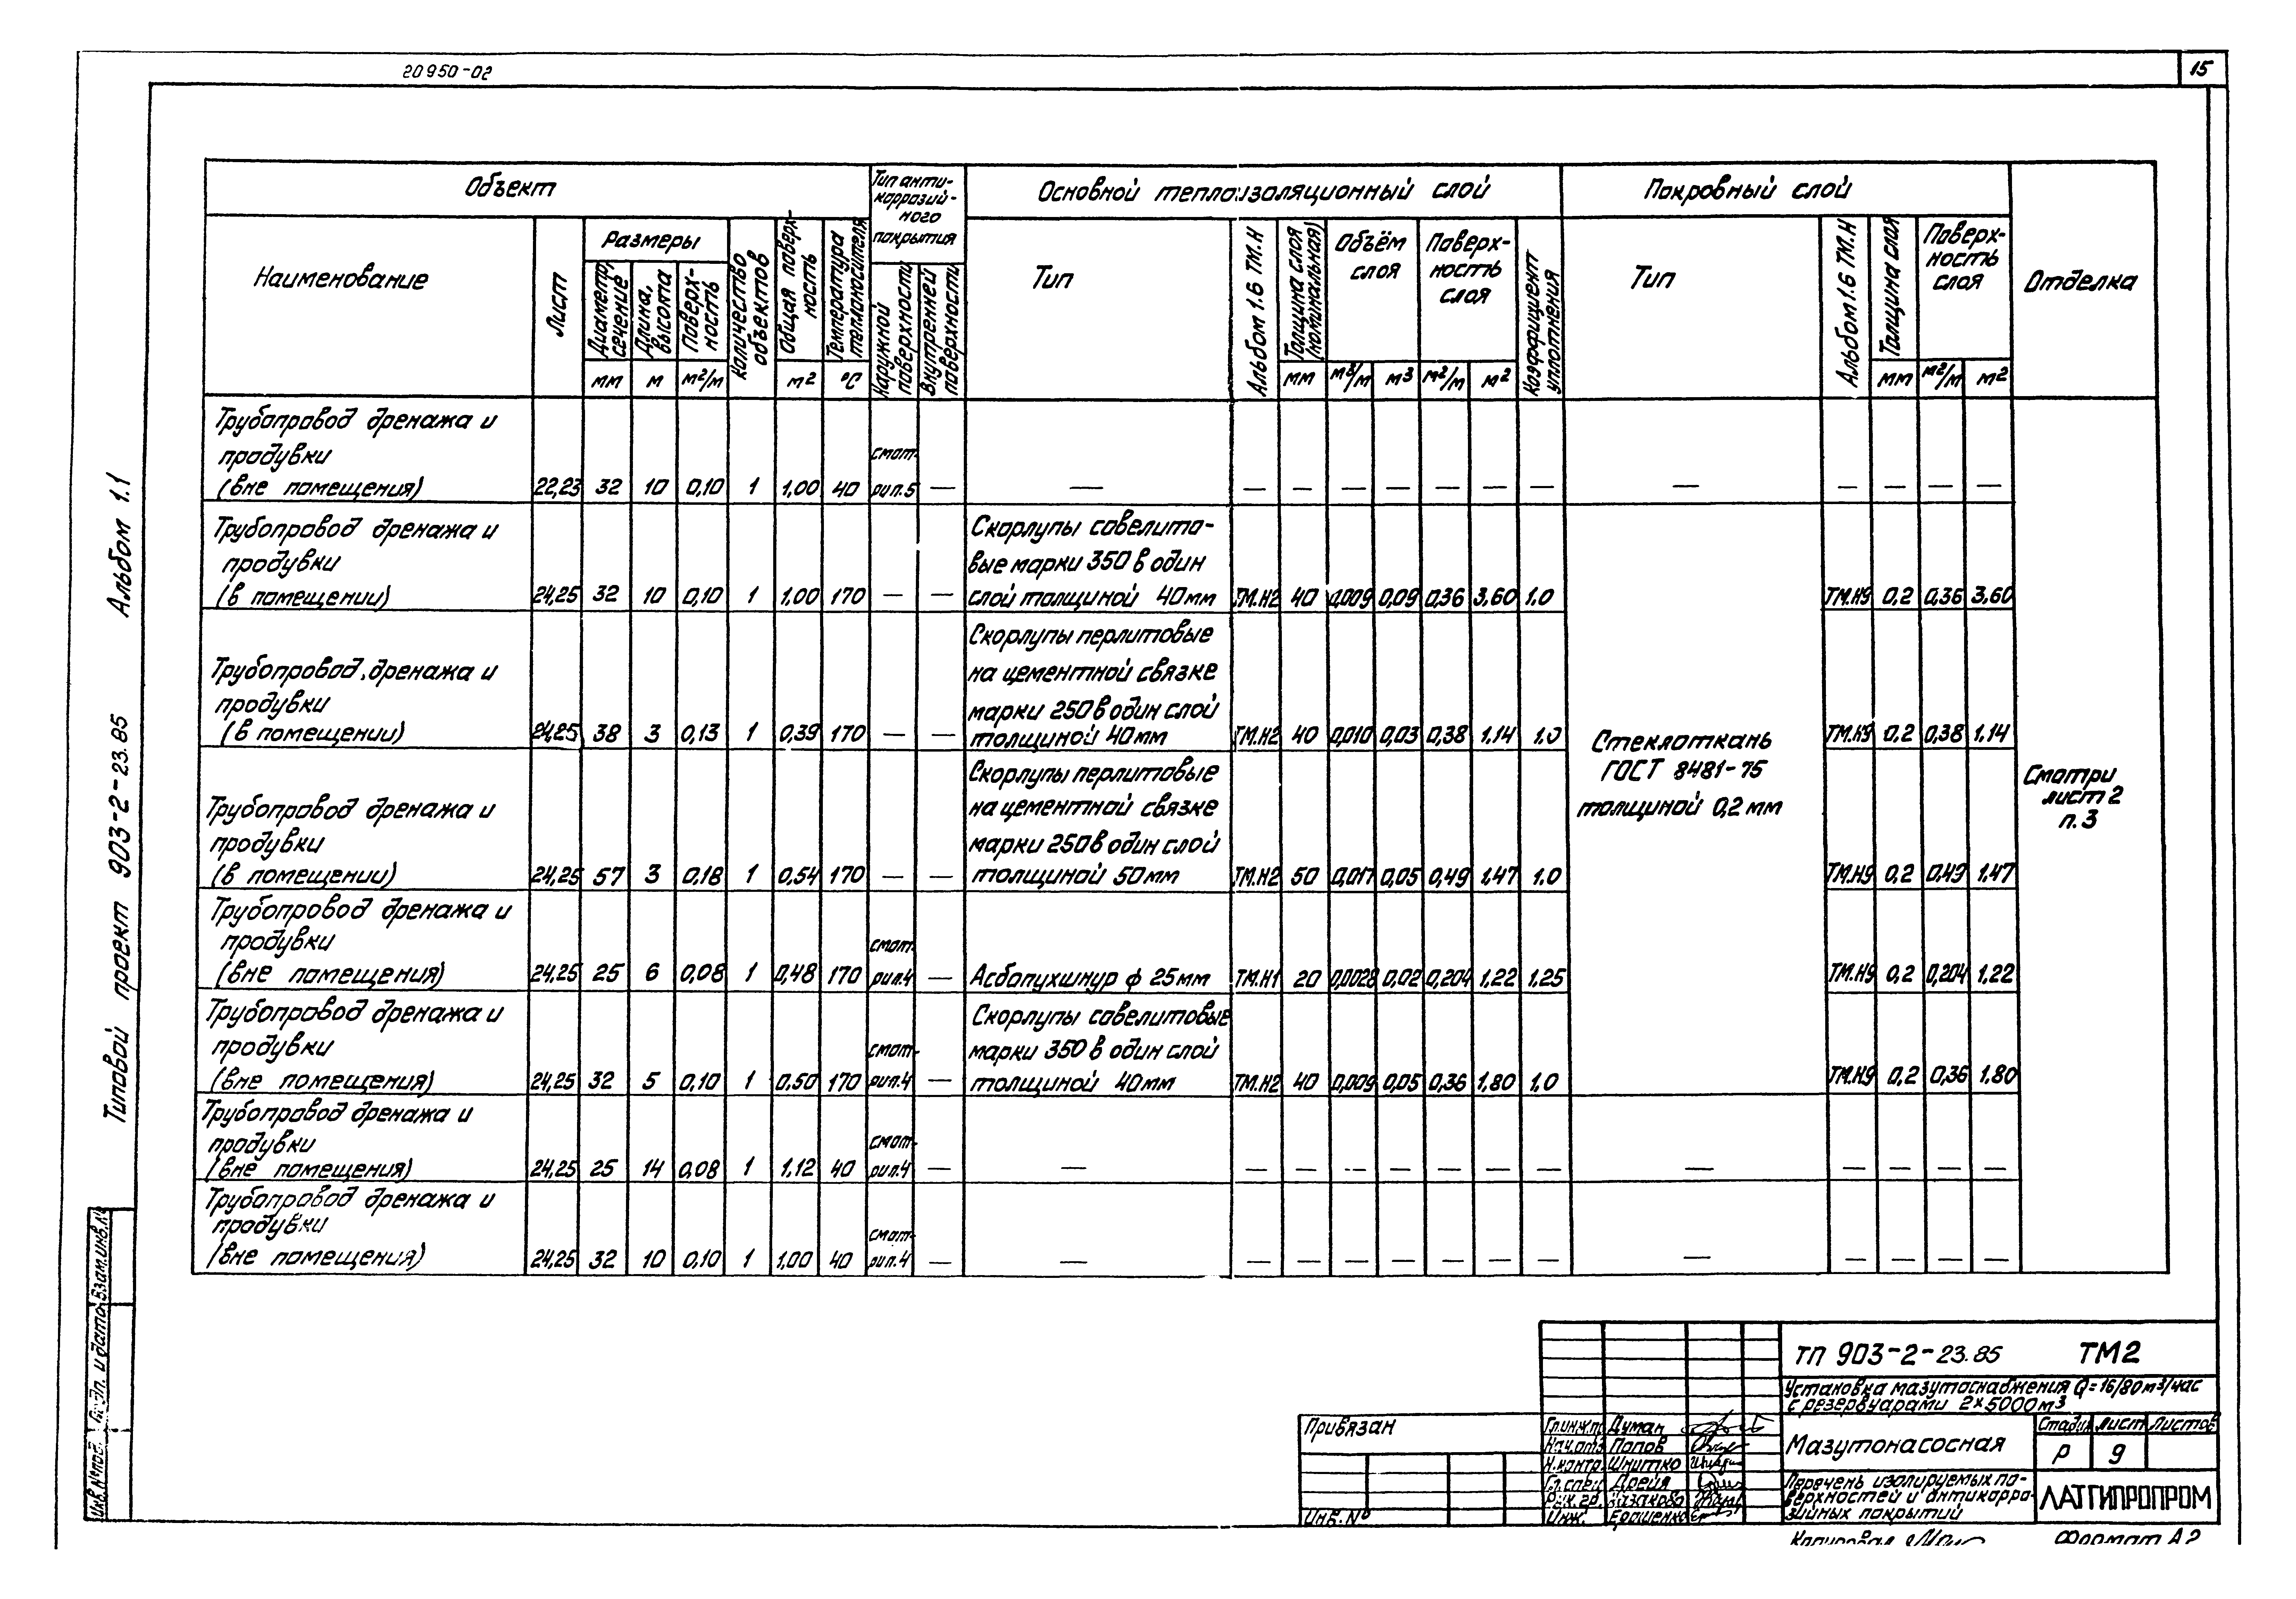 20950-02
15
Объект
Тип анти-
коррозий-
ного
покрытия
Основной теплоизоляционный слой
Покровный слой
Отделка
Наименование
Лист
Размеры
Диаметр, сечение
Длина, высота
Поверх-
ность
Количество объектов
Общая поверх-
ность
Температура теплоносителя
Наружной поверхности
Внутренней поверхности
Тип
Альбом 1.6 ТМ.Н
Толщина слоя (номинальная)
Объём слоя
Поверх-
ность
слоя
Коэффициент уплотнения
Тип
Альбом 1.6 ТМ.Н
Толщина слоя
Поверх-
ность
слоя
мм м м²/м м² °С мм м³/м м³ м²/м м² мм м²/м м²
Трубопровод дренажа и
продувки смот-
(вне помещения) 22,23 32 10 0,10 1 1,00 40 ри п.5 — — — — — — — — — — — — — —
Трубопровод дренажа и Скорлупы совелито-
продувки вые марки 350 в один
(в помещении) 24,25 32 10 0,10 1 1,00 170 — — слой толщиной 40 мм ТМ.Н2 40 0,009 0,09 0,36 3,60 1.0 ТМ.Н9 0,2 0,36 3,60
Скорлупы перлитовые
Трубопровод дренажа и на цементной связке
продувки марки 250 в один слой
(в помещении) 24,25 38 3 0,13 1 0,39 170 — — толщиной 40 мм ТМ.Н2 40 0,010 0,03 0,38 1,14 1.0 ТМ.Н9 0,2 0,38 1.14
Стеклоткань
ГОСТ 8481-75
толщиной 0,2 мм
Смотри
лист 2
п.3
Скорлупы перлитовые
Трубопровод дренажа и на цементной связке
продувки марки 250 в один слой
(в помещении) 24,25 57 3 0,18 1 0,54 170 — — толщиной 50 мм ТМ.Н2 50 0,017 0,05 0,49 1,47 1.0 ТМ.Н9 0,2 0,49 1.47
Трубопровод дренажа и
продувки смот-
(вне помещения) 24,25 25 6 0,08 1 0,48 170 ри п.4 — Асбопухшнур ф 25 мм ТМ.Н1 20 0,0028 0,02 0,204 1,22 1,25 ТМ.Н9 0,2 0,204 1,22
Трубопровод дренажа и Скорлупы совелитовые
продувки смот- марки 350 в один слой
(вне помещения) 24,25 32 5 0,10 1 0,50 170 ри п.4 — толщиной 40 мм ТМ.Н2 40 0,009 0,05 0,36 1,80 1.0 ТМ.Н9 0,2 0,36 1,80
Трубопровод дренажа и
продувки смот-
(вне помещения) 24,25 25 14 0,08 1 1,12 40 ри п.4 — — — — — — — — — — — — — —
Трубопровод дренажа и
продувки смот-
(вне помещения) 24,25 32 10 0,10 1 1,00 40 ри п.4 — — — — — — — — — — — — — —
Типовой проект 903-2-23.85 Альбом 1.1
Взам.инв.№
и дата
Инв.№ под.
ТП 903-2-23.85 ТМ2
Установка мазутоснабжения Q=16/80 м³/час
с резервуарами 2×5000 м³
Привязан
Инв.№
Гл.инж.пр Думан
Нач.отд Попов
Н.контр. Шнитко
Гл.спец Дрейя
Рук.гр. Казакова
Инж. Ерошенко
Мазутонасосная
Стадия Лист Листов
Р 9
Перечень изолируемых по-
верхностей и антикорро-
зийных покрытий
ЛАТГИПРОПРОМ
Копировал
Формат А2